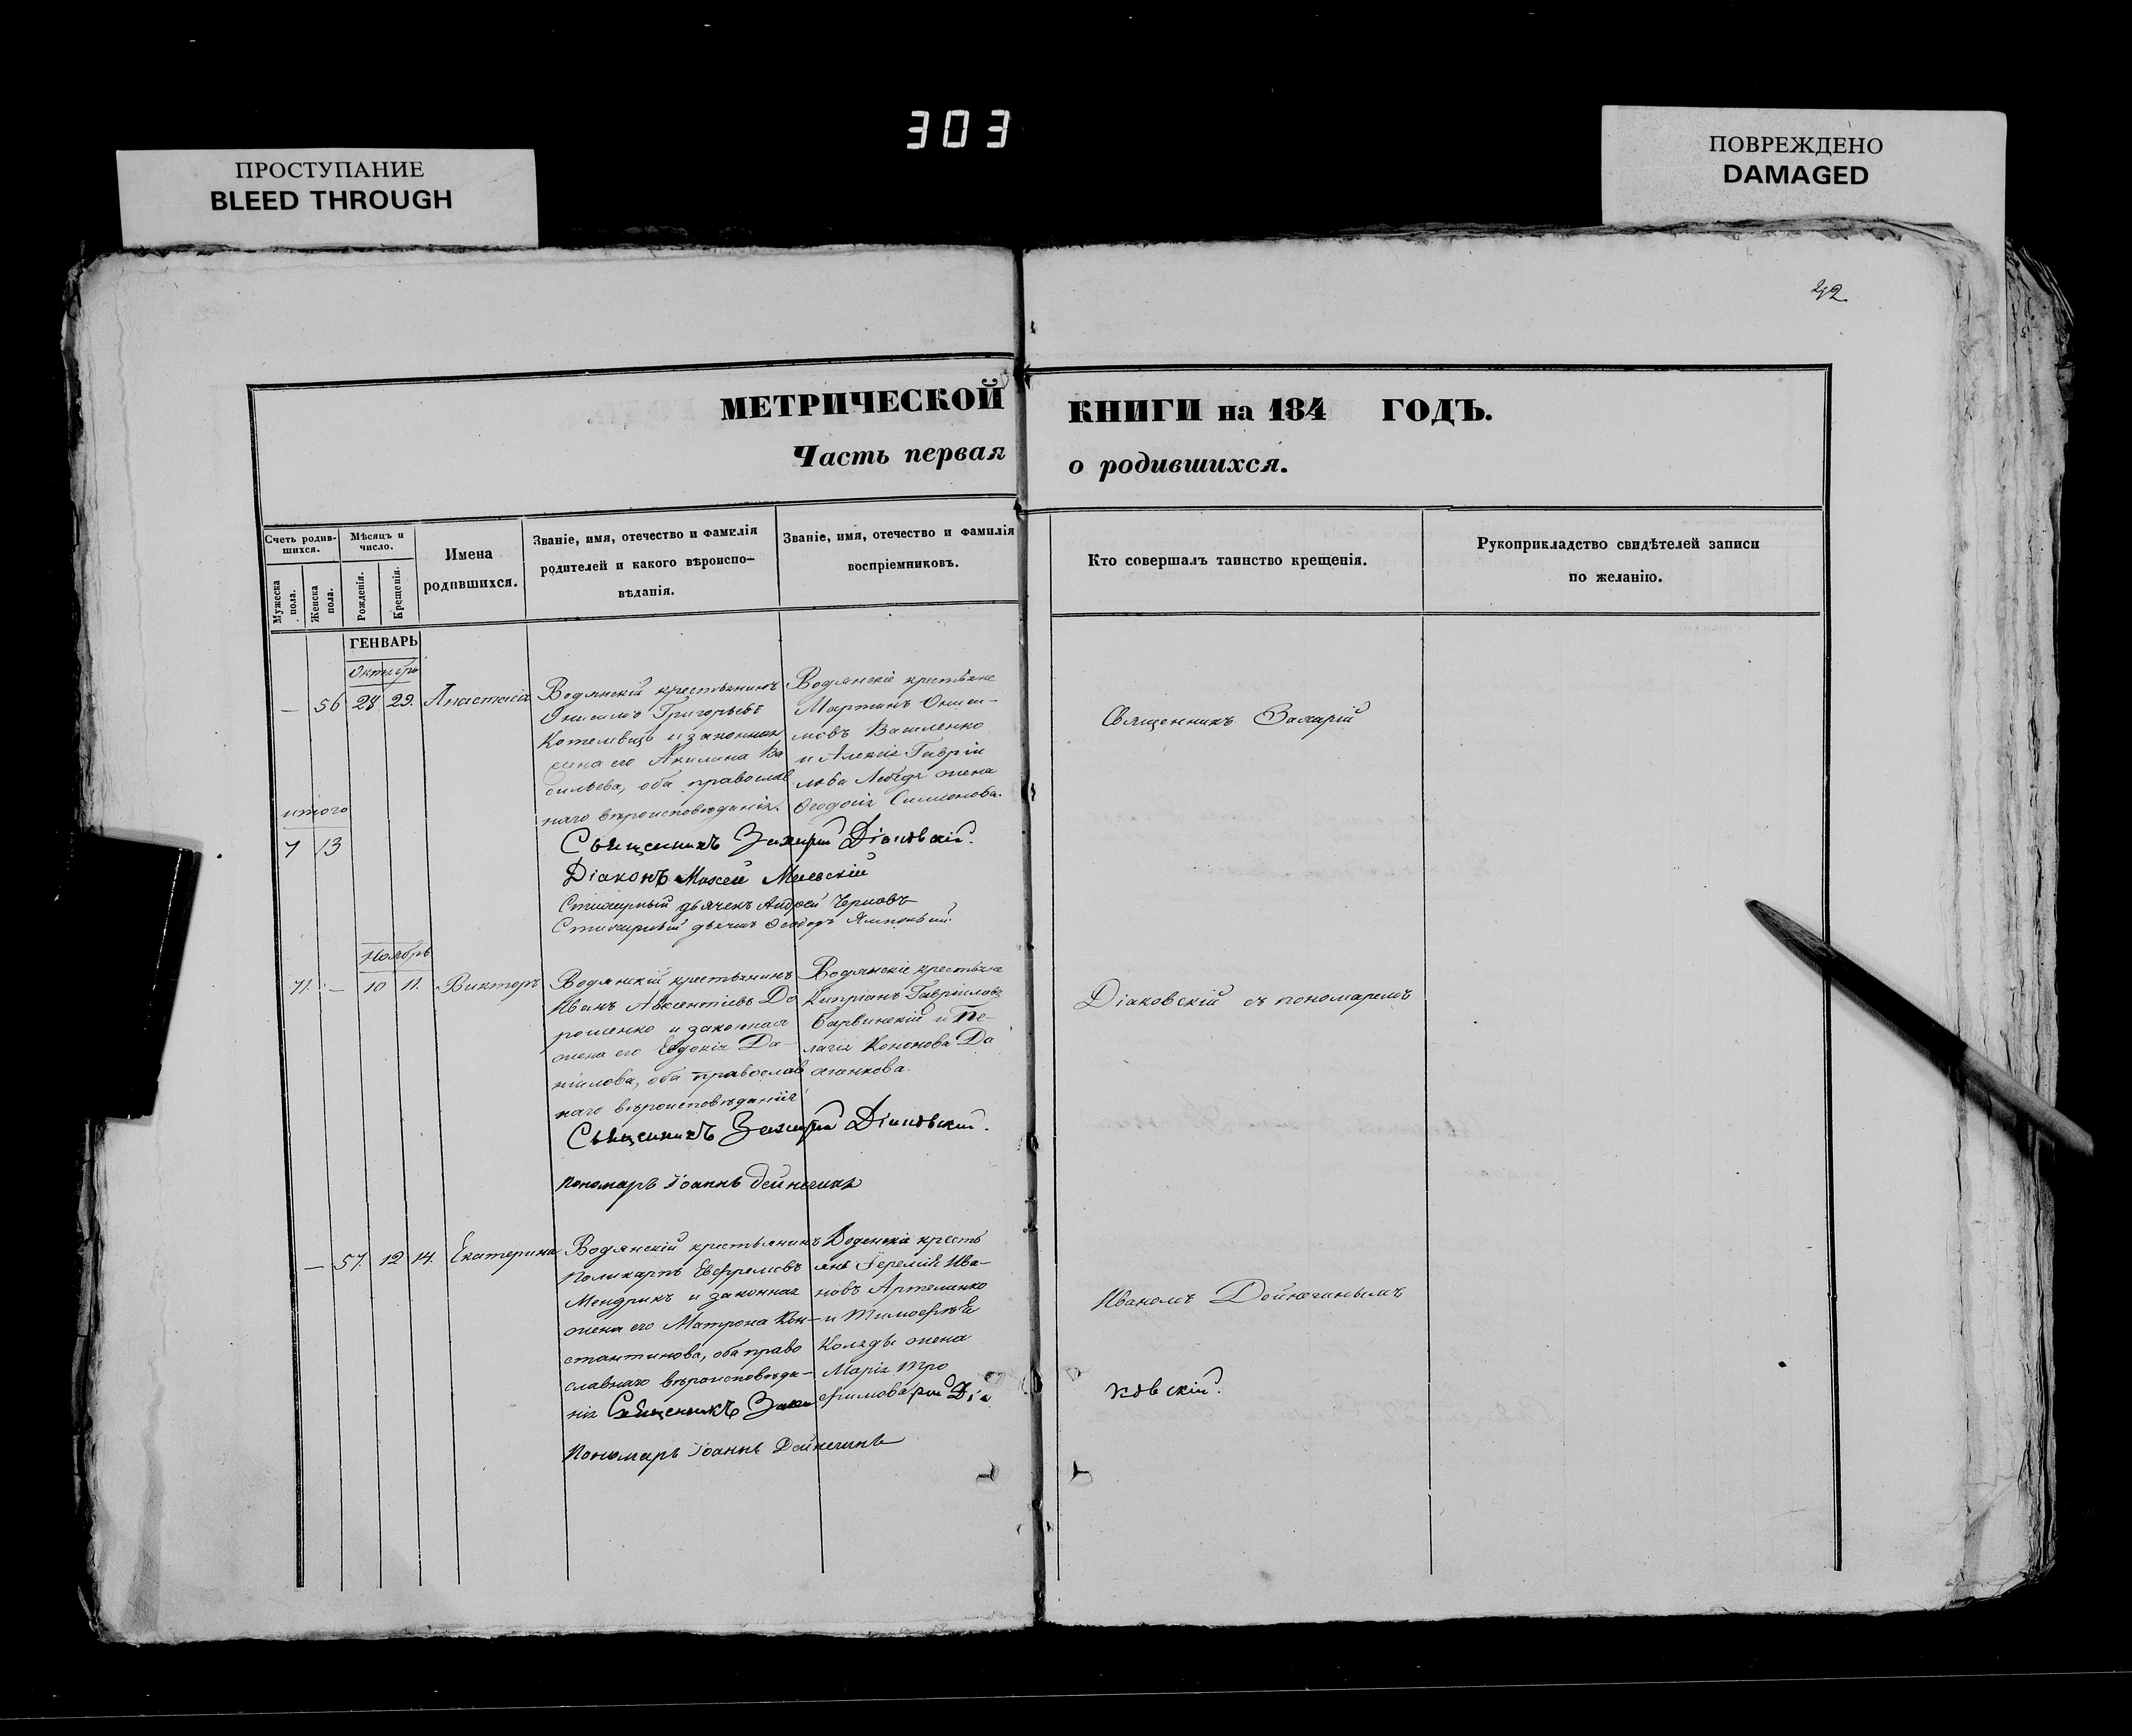 303
ПРОСТУПАНИЕ
BLEED THROUGH
ПОВРЕЖДЕНО
DAMAGED
МЕТРИЧЕСКОЙ КНИГИ на 184 ГОДЪ.
Часть первая о родившихся.
Счетъ родив-
шихся.
Мужеска пола.
Женска пола.
Мѣсяцъ и
число.
Рожденія.
Крещенія.
Имена
родившихся.
Званіе, имя, отечество и фамилія
родителей и какого вѣроиспо-
вѣданія.
Званіе, имя, отечество и фамилія
воспріемниковъ.
Кто совершалъ таинство крещенія.
Рукоприкладство свидѣтелей записи
по желанію.
ГЕНВАРЬ
Октябрь
— 56 28 29. Анастасія
Водянскій крестьянинъ
Григорьевъ
и законная
жена его Акилина Ва
сильева, оба православ
наго вѣроисповѣданія.
Водянскіе крестьяне
Мартинъ Ониси-
мовъ Василенко
и Алексія Гавріи
лова Лебедя жена
Ѳеодосія Симеонова.
Священникъ Захарій
итого
7 13
Священникъ Захарій Діаковскій.
Діаконъ Моѵсей
Стихарный дьячекъ Андрей Черновъ
Стихарный дьячекъ Ѳеодоръ
Ноябрь
71. — 10 11. Викторъ
Водянскій крестьянинъ
Иванъ Авксентіевъ До
рошенко и законная
жена его Евдокія Да-
ніилова, оба православ
наго вѣроисповѣданія
Водянскіе крестьяне
Кипріанъ Гавріиловъ
Барвинскій и Пе-
лагія Кононова До
Діаковскій съ пономаремъ
Священникъ Захарій Діаковскій.
Пономарь Іоаннъ Дейнегинъ
— 57. 12 14. Екатерина
Водянскій крестьянинъ
Поликарпъ Евфремовъ
Мендрикъ и законная
жена его Матрона Кон-
стантинова, оба право
славнаго вѣроисповѣда-
нія
Водянскіе кресть
яне Іеремія Ива-
новъ Артеменко
и Тимоѳѣя
Коляды жена
Марія Тро
фимова
Иваномъ Дейнегинымъ
Священникъ Захарій Діаковскій.
Пономарь Іоаннъ Дейнегинъ